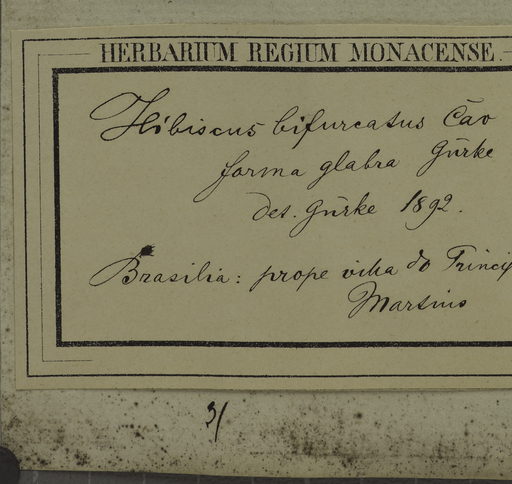 HERBARIUM REGIUM MONACENSE.
Hibiscus bifurcatus Cav
forma glabra Gürke
det. Gürke 1892.
Brasilia: prope villa do Princip
Martius
31